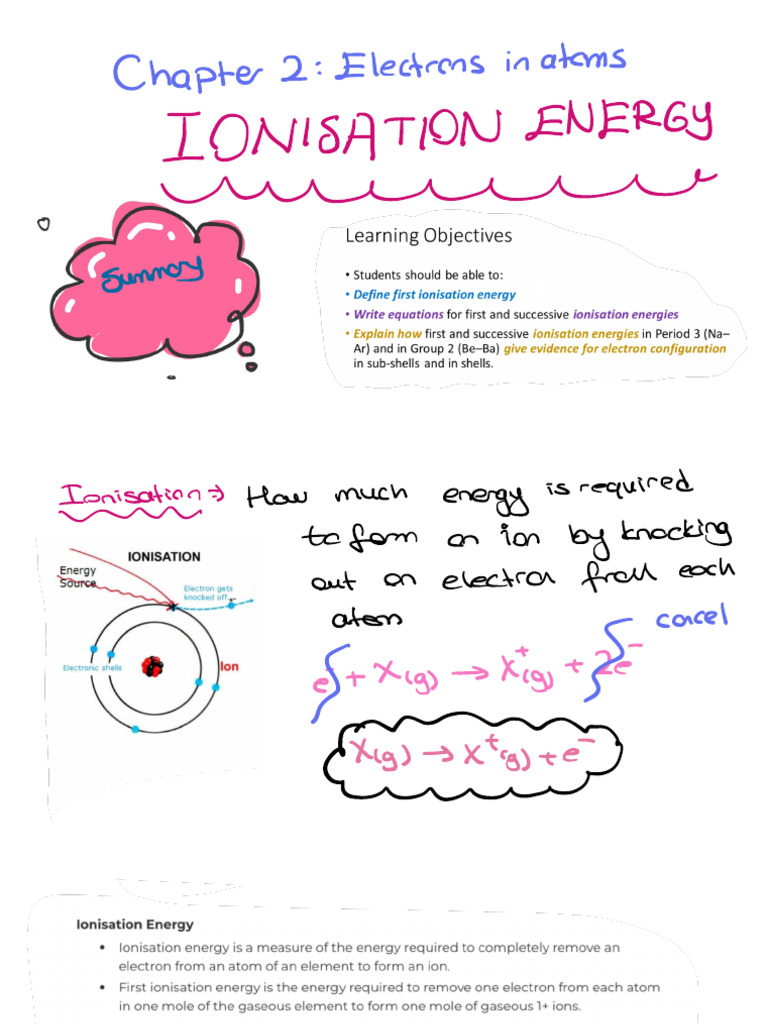 Chapter 2: Electrons in atoms
IONISATION ENERGY
Summary
Learning Objectives
• Students should be able to:
• Define first ionisation energy
• Write equations for first and successive ionisation energies
• Explain how first and successive ionisation energies in Period 3 (Na–
Ar) and in Group 2 (Be–Ba) give evidence for electron configuration
in sub-shells and in shells.
Ionisation ⇒ How much energy is required
to form an ion by knocking
out an electron from each
atom
IONISATION
Energy
Source
Electron gets
knocked off
Electronic shells
Ion
cancel
e⁻ + X(g) → X⁺(g) + 2e⁻
X(g) → X⁺(g) + e⁻
Ionisation Energy
• Ionisation energy is a measure of the energy required to completely remove an
electron from an atom of an element to form an ion.
• First ionisation energy is the energy required to remove one electron from each atom
in one mole of the gaseous element to form one mole of gaseous 1+ ions.